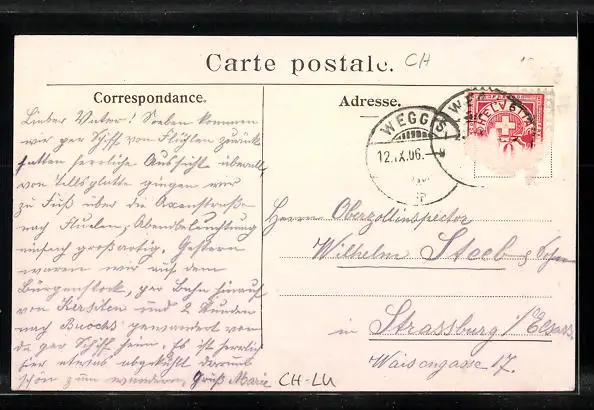 Carte postale. CH
Correspondance.
Adresse.
WEGGIS
12.IX.06.
WEGGIS
HELVETIA
Lieber Vater! Soeben kommen
wir per Schiff von Flüelen zurück
hatten herrliche Aussicht überall
von Tellsplatte gingen wir
zu Fuß über die Axenstraße
nach Fluelen, Abendbeleuchtung
einfach großartig. Gestern
waren wir auf dem
Bürgenstock, per Bahn hinauf
von Kersiten und 2 Stunden
nach Buochs gewandert von
da per Schiff heim. Es ist herrlich
hier etwas abgekühlt darum
schön zum wandern, Gruß Marie
Herrn Oberzollinspector
Wilhelm Staeb &
in Strassburg i/Elsass
Waisengasse 17.
CH-LU